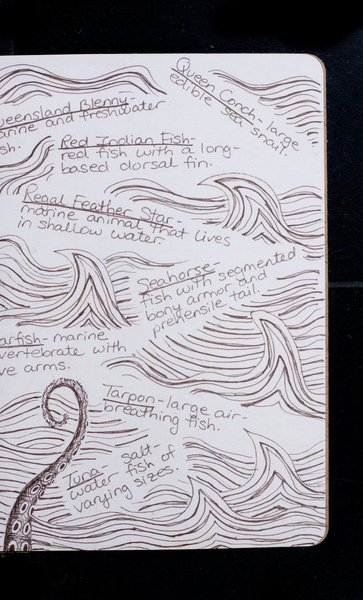 Queen Conch- large
edible sea snail.
ueensland Blenny-
arine and freshwater
sh.
Red Indian Fish-
red fish with a long-
based dorsal fin.
Regal Feather Star-
marine animal that lives
in shallow water.
Seahorse-
fish with segmented
bony armor and
prehensile tail.
arfish- marine
vertebrate with
ve arms.
Tarpon- large air-
breathing fish.
Tuna- salt-
water fish of
varying sizes.